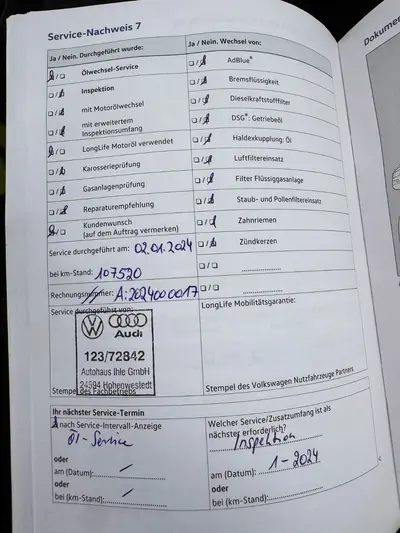 Service-Nachweis 7
Ja / Nein. Durchgeführt wurde:
Ölwechsel-Service
Inspektion
mit Motorölwechsel
mit erweitertem
Inspektionsumfang
LongLife Motoröl verwendet
Karosserieprüfung
Gasanlagenprüfung
Reparaturempfehlung
Kundenwunsch
(auf dem Auftrag vermerken)
Service durchgeführt am: 02.01.2024
bei km-Stand: 107520
Rechnungsnummer: A:2024000017
Service durchgeführt von:
Audi
123/72842
Autohaus Ihle GmbH
24594 Hohenwestedt
Stempel des Fachbetriebs
Ja / Nein. Wechsel von:
AdBlue®
Bremsflüssigkeit
Dieselkraftstofffilter
DSG®: Getriebeöl
Haldexkupplung: Öl
Luftfiltereinsatz
Filter Flüssiggasanlage
Staub- und Pollenfiltereinsatz
Zahnriemen
Zündkerzen
LongLife Mobilitätsgarantie:
Stempel des Volkswagen Nutzfahrzeuge Partners
Ihr nächster Service-Termin
nach Service-Intervall-Anzeige
Öl-Service
oder
am (Datum): /
oder
bei (km-Stand): /
Welcher Service/Zusatzumfang ist als
nächster erforderlich?
Inspektion
am (Datum): 1-2024
oder
bei (km-Stand): /
Dokume